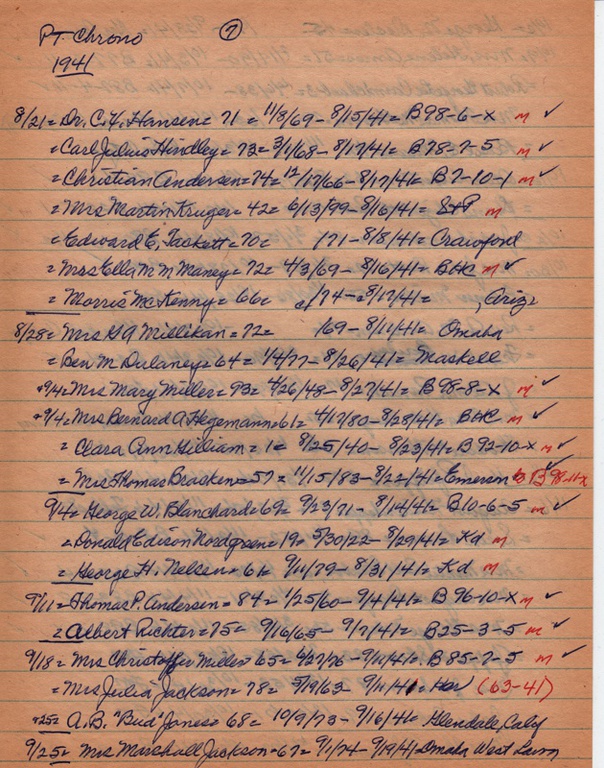 PT. Chrono (7)
1941
8/21 = Dr. C.Y. Hansen = 71 = 11/8/69 - 8/15/41 = B98-6-X m ✓
= Carl Julius Hindley = 73 = 3/1/68 - 8/17/41 = B78-7-5 m ✓
= Christian Andersen = 74 = 12/17/66 - 8/17/41 = B7-10-1 m ✓
= Mrs Martin Kruger = 42 = 6/13/99 - 8/16/41 = StP m
= Edward E. Tackett = 70 = /71 - 8/8/41 = Crawford
= Mrs Ella M McManey = 72 = 4/3/69 - 8/16/41 = BHC m ✓
= Morris McKenny = 66 = /74 - 8/17/41 = , Ariz
8/28 = Mrs G A Millikan = 72 = /69 - 8/11/41 = Omaha
= Ben M. Dulaney = 64 = 1/4/77 - 8/26/41 = Maskell
+9/4 = Mrs Mary Miller = 93 = 4/26/48 - 8/27/41 = B98-8-X m ✓
+9/4 = Mrs Bernard A. Hegemann = 61 = 4/17/80 - 8/28/41 = BHC m ✓
= Clara Ann Gilliam = 1 = 8/25/40 - 8/23/41 = B92-10-X m ✓
= Mrs Thomas Bracken = 57 = 11/15/83 - 8/22/41 = Emerson B98-11-X
9/4 = George W. Blanchard = 69 = 9/23/71 - 8/14/41 = B10-6-5 m ✓
= Donald Edison Nordgreen = 19 = 5/30/22 - 8/29/41 = Kd m
= George H. Nelsen = 61 = 9/11/79 - 8/31/41 = Kd m
9/11 = Thomas P. Andersen = 84 = 1/25/60 - 9/4/41 = B96-10-X m ✓
= Albert Richter = 75 = 9/16/65 - 9/7/41 = B25-3-5 m ✓
9/18 = Mrs Christoffer Miller = 65 = 6/27/76 - 9/11/41 = B85-7-5 m ✓
= Mrs Julia Jackson = 78 = 5/19/63 - 9/11/41 = Har (63-41)
+25 = A.B. "Bud" Jones = 68 = 10/9/73 - 9/16/41 = Glendale, Calif
9/25 = Mrs Marshall Jackson = 67 = 9/1/74 - 9/19/41 = Omaha West Lawn